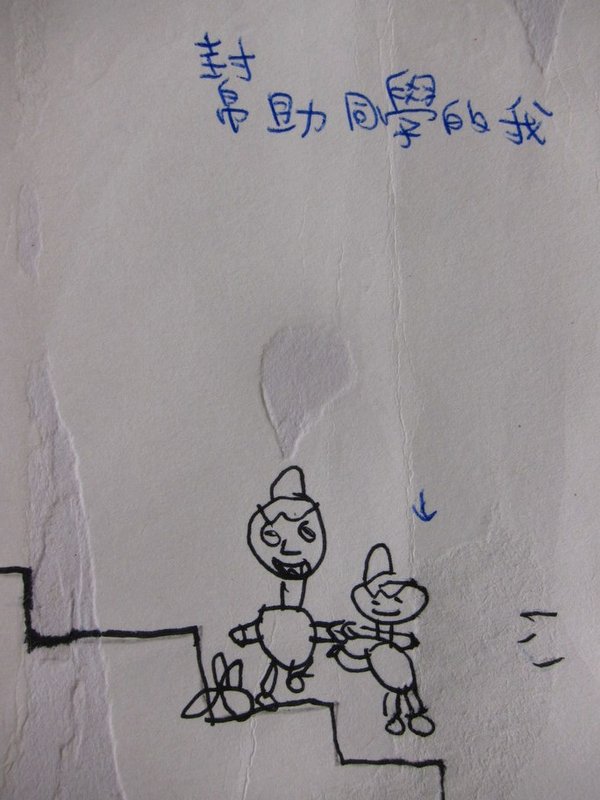 幫助同學的我